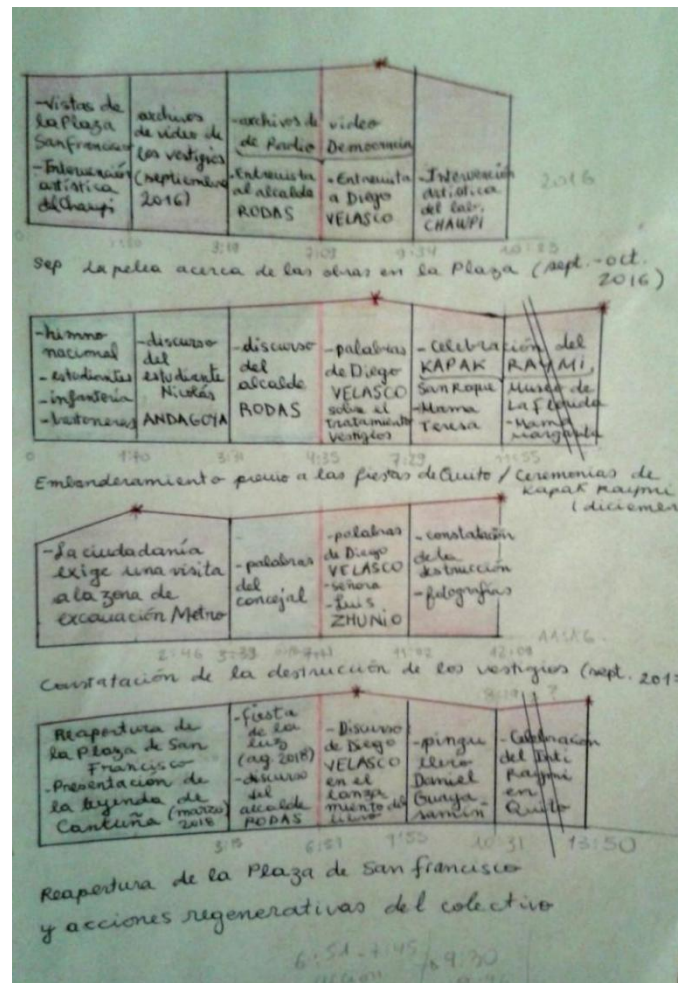 -Vistas de
la Plaza
San Francisco
-Intervención
artística
del Chawpi
archivos
de video de
los vestigios
(septiembre
2016)
-archivos de
de Radio
-Entrevista
al alcalde
RODAS
video
Democracia
-Entrevista
a Diego
VELASCO
-Intervención
artística
del lab.
CHAWPI
2016
0
3:18
7:09
9:34
Sep La pelea acerca de las obras en la Plaza (sept.-oct.
2016)
-himno
nacional
-estudiantes
-infantería
-bastoneras
-discurso
del
estudiante
Nicolás
ANDAGOYA
-discurso
del
alcalde
RODAS
-palabras
de Diego
VELASCO
sobre el
tratamiento
vestigios
-Celebración del
KAPAK RAYMI,
San Roque
-Mama
Teresa
Museo de
La Florida
-Mama
Margarita
0
1:40
3:31
4:35
7:29
11:55
Embanderamiento previo a las fiestas de Quito / Ceremonias de
Kapak Raymi
(diciem
-La ciudadanía
exige una visita
a la zona de
excavación Metro
-palabras
del
concejal
-palabras
de Diego
VELASCO
-señora
-Luis
ZHUNIO
-constatación
de la
destrucción
-fotografías
2:46
3:39
11:02
12:09
Constatación de la destrucción de los vestigios (sept. 201
Reapertura de
la Plaza de San
Francisco
-Presentación de
la leyenda de
Cantuña (marzo
2018
-fiesta
de la
luz
(ag. 2018)
-discurso
del
alcalde
RODAS
-Discurso
de Diego
VELASCO
en el
lanza
miento del
libro
-pingu
llero
Daniel
Guaya
samín
-Celebración
del Inti
Raymi
en
Quito
3:15
6:51
7:55
10:31
13:50
Reapertura de la Plaza de San Francisco
y acciones regenerativas del colectivo
6:51-7:45
9:30